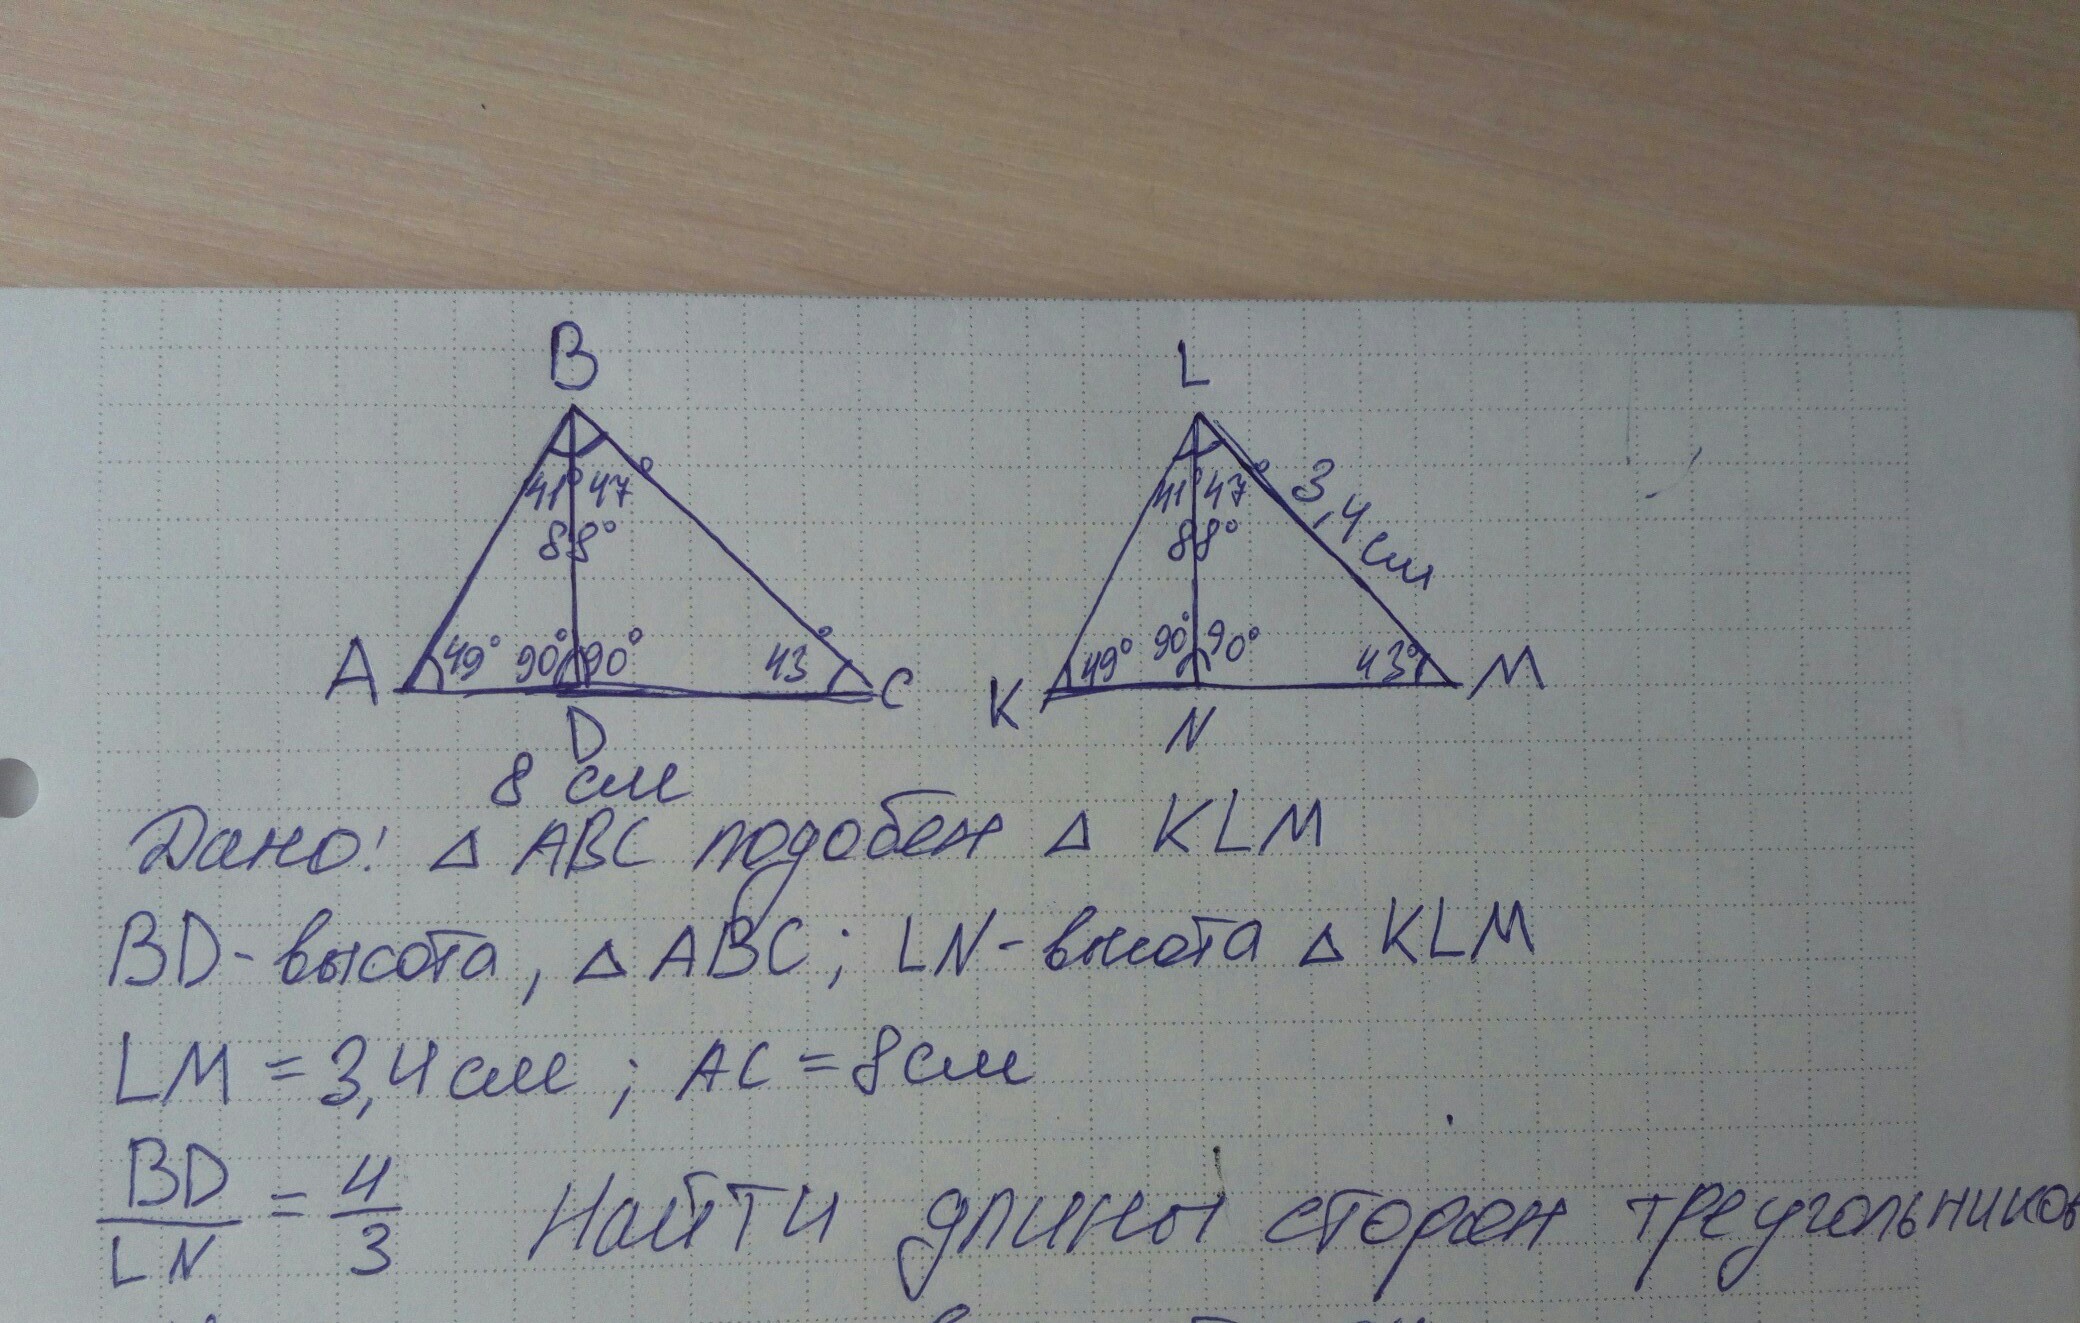 B L
41° 47° 41° 47° 3,4 см
88° 88°
A 49° 90° 90° 43° C K 49° 90° 90° 43° M
D N
8 см
Дано: △ ABC подобен △ KLM
BD - высота, △ ABC; LN - высота △ KLM
LM = 3,4 см; AC = 8 см
BD/LN = 4/3 Найти длины сторон треугольников